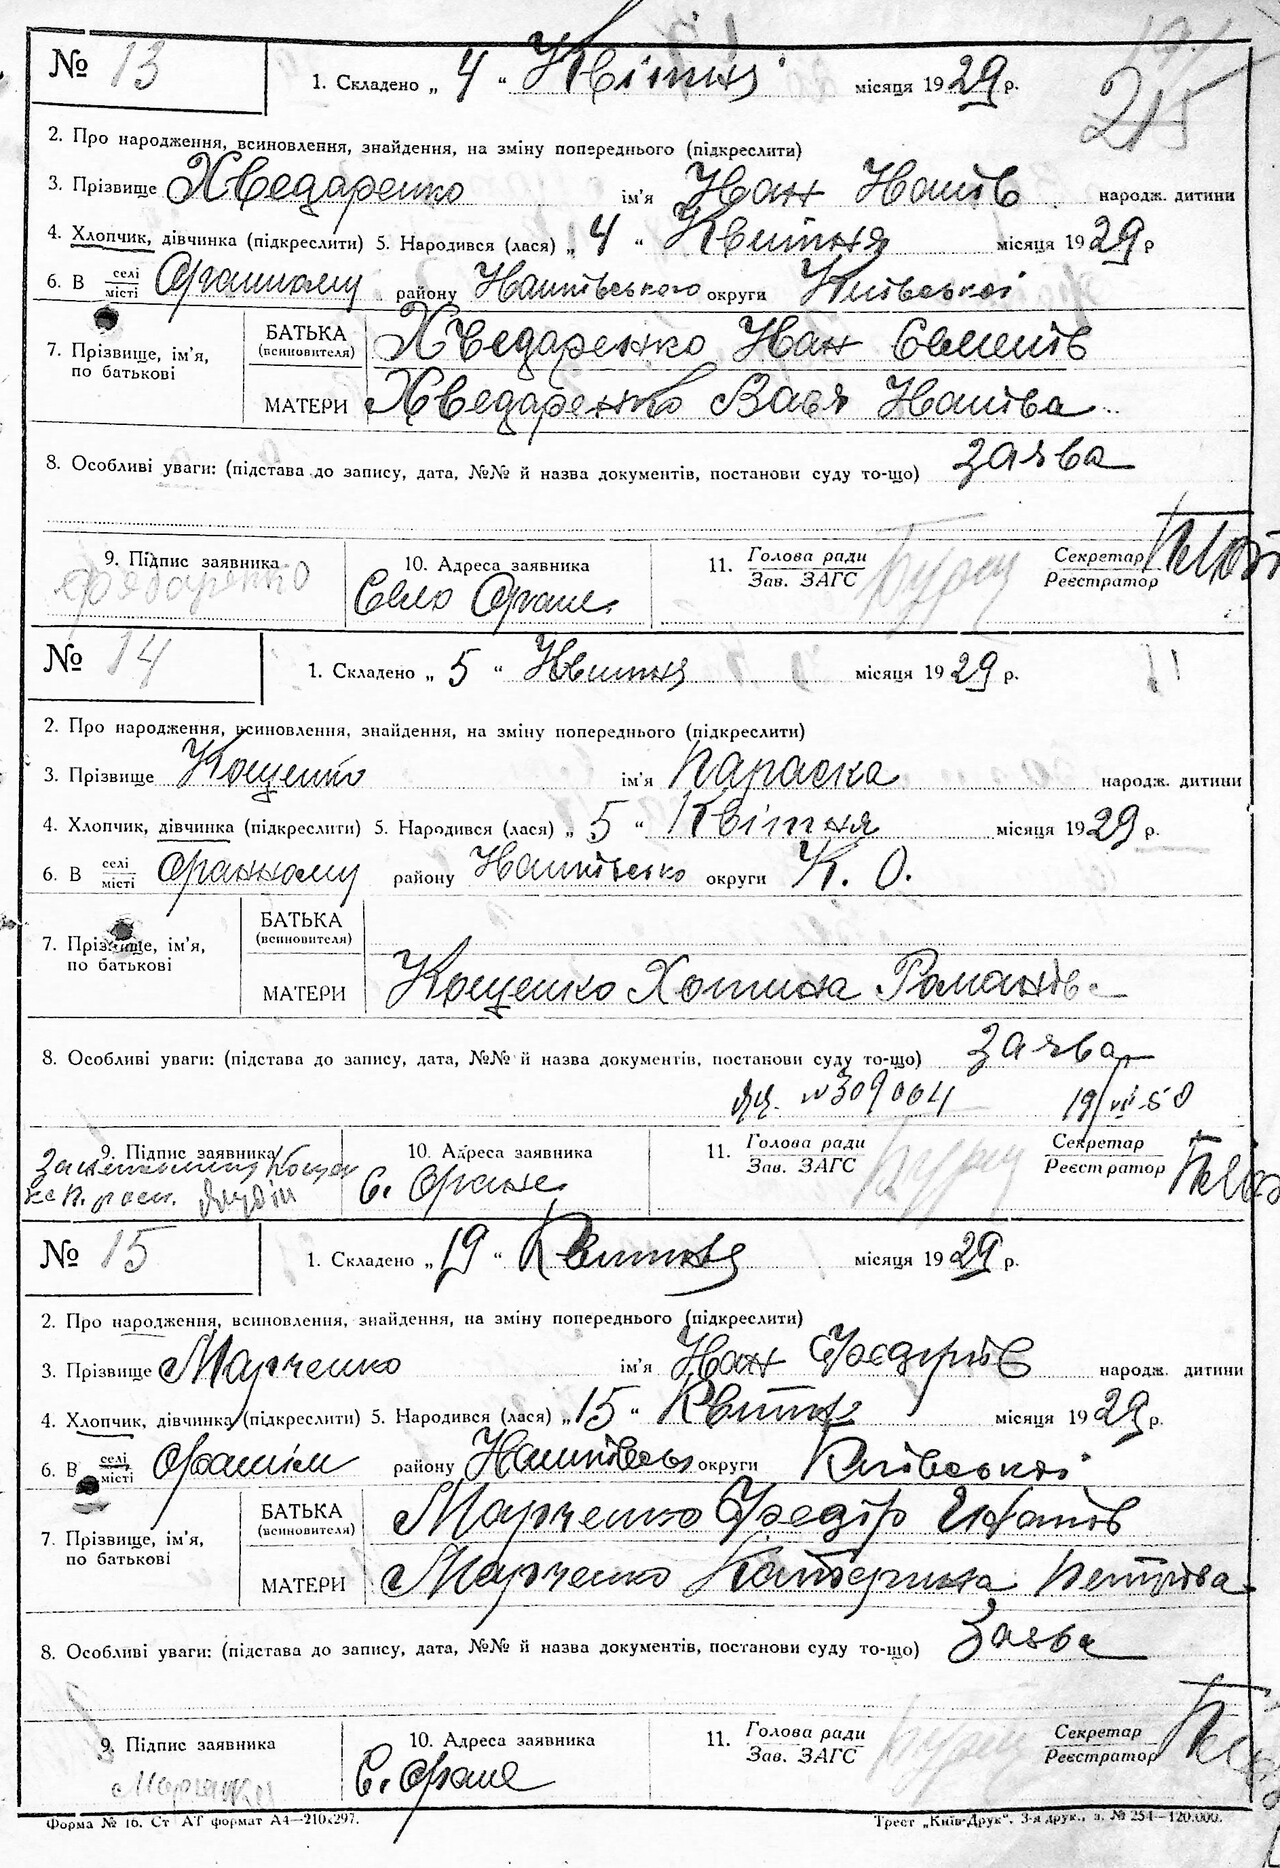 191
215
№ 13 1. Складено „ 4 “ Квітня місяця 1929 р.
2. Про народження, всиновлення, знайдення, на зміну попереднього (підкреслити)
3. Прізвище Хведаренко ім'я Иван Иванів народж. дитини
4. Хлопчик, дівчинка (підкреслити) 5. Народився (лася) „ 4 “ Квитня місяця 1929 р
6. В селі/місті Ораному району Иванківського округи Київської
7. Прізвище, ім'я, по батькові БАТЬКА (всиновителя) Хведаренко Иван Евменів
МАТЕРИ Хведаренко Иванівна
8. Особливі уваги: (підстава до запису, дата, №№ й назва документів, постанови суду то-що) заява
9. Підпис заявника Федаренко 10. Адреса заявника Село Оране. 11. Голова ради/Зав. ЗАГС Секретар/Реєстратор
№ 14 1. Складено „ 5 “ Квитня місяця 1929 р.
2. Про народження, всиновлення, знайдення, на зміну попереднього (підкреслити)
3. Прізвище Кощенко ім'я Параска народж. дитини
4. Хлопчик, дівчинка (підкреслити) 5. Народився (лася) „ 5 “ Квітня місяця 1929 р.
6. В селі/місті Оранному району Иванківсько округи К. О.
7. Прізвище, ім'я, по батькові БАТЬКА (всиновителя)
МАТЕРИ Кощенко Хотина Романів
8. Особливі уваги: (підстава до запису, дата, №№ й назва документів, постанови суду то-що) заява
№309064 19/VI-50
9. Підпис заявника 10. Адреса заявника С. Оране. 11. Голова ради/Зав. ЗАГС Секретар/Реєстратор
№ 15 1. Складено „ 19 “ Квитня місяця 1929 р.
2. Про народження, всиновлення, знайдення, на зміну попереднього (підкреслити)
3. Прізвище Марченко ім'я Иван Федорів народж. дитини
4. Хлопчик, дівчинка (підкреслити) 5. Народився (лася) „ 15 “ Квитня місяця 1929 р.
6. В селі/місті Оранім району Иванківськ округи Київської
7. Прізвище, ім'я, по батькові БАТЬКА (всиновителя) Марченко Федір
МАТЕРИ Марченко Катерина Петрівна
8. Особливі уваги: (підстава до запису, дата, №№ й назва документів, постанови суду то-що) Заява
9. Підпис заявника Марченко 10. Адреса заявника С. Оране 11. Голова ради/Зав. ЗАГС Секретар/Реєстратор
Форма № 16. Ст АТ формат А4—210х297. Трест „Київ-Друк“. 3-я друк., з. № 254—120.000.